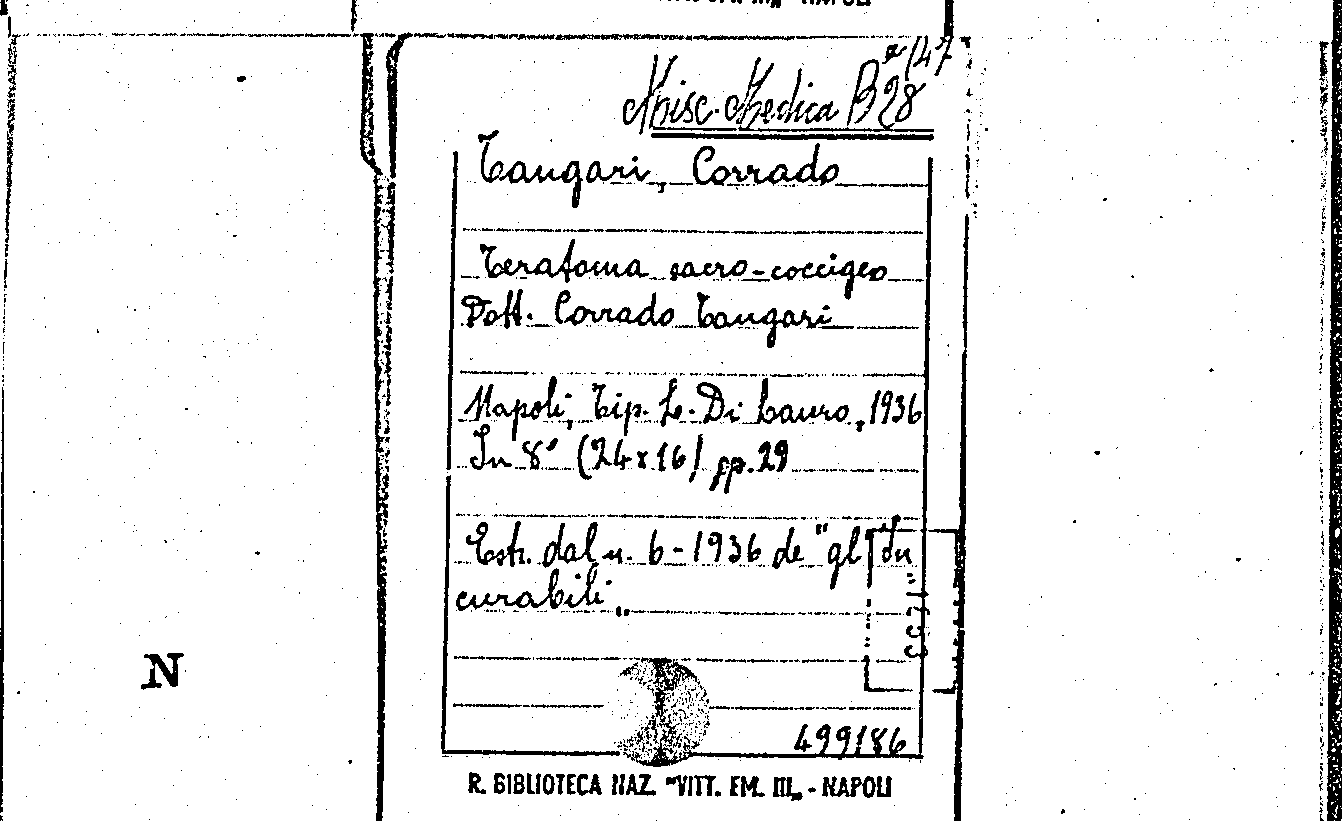 NAPOLI
Misc. Medica B 28
(47
Tangari, Corrado
Teratoma sacro-coccigeo
Dott. Corrado Tangari
Napoli, Tip. L. Di Lauro, 1936
In 8° (24x16) pp. 29
Estr. dal n. 6-1936 de "gl' In
curabili„
N
499186
R. BIBLIOTECA NAZ. "VITT. EM. III„ - NAPOLI